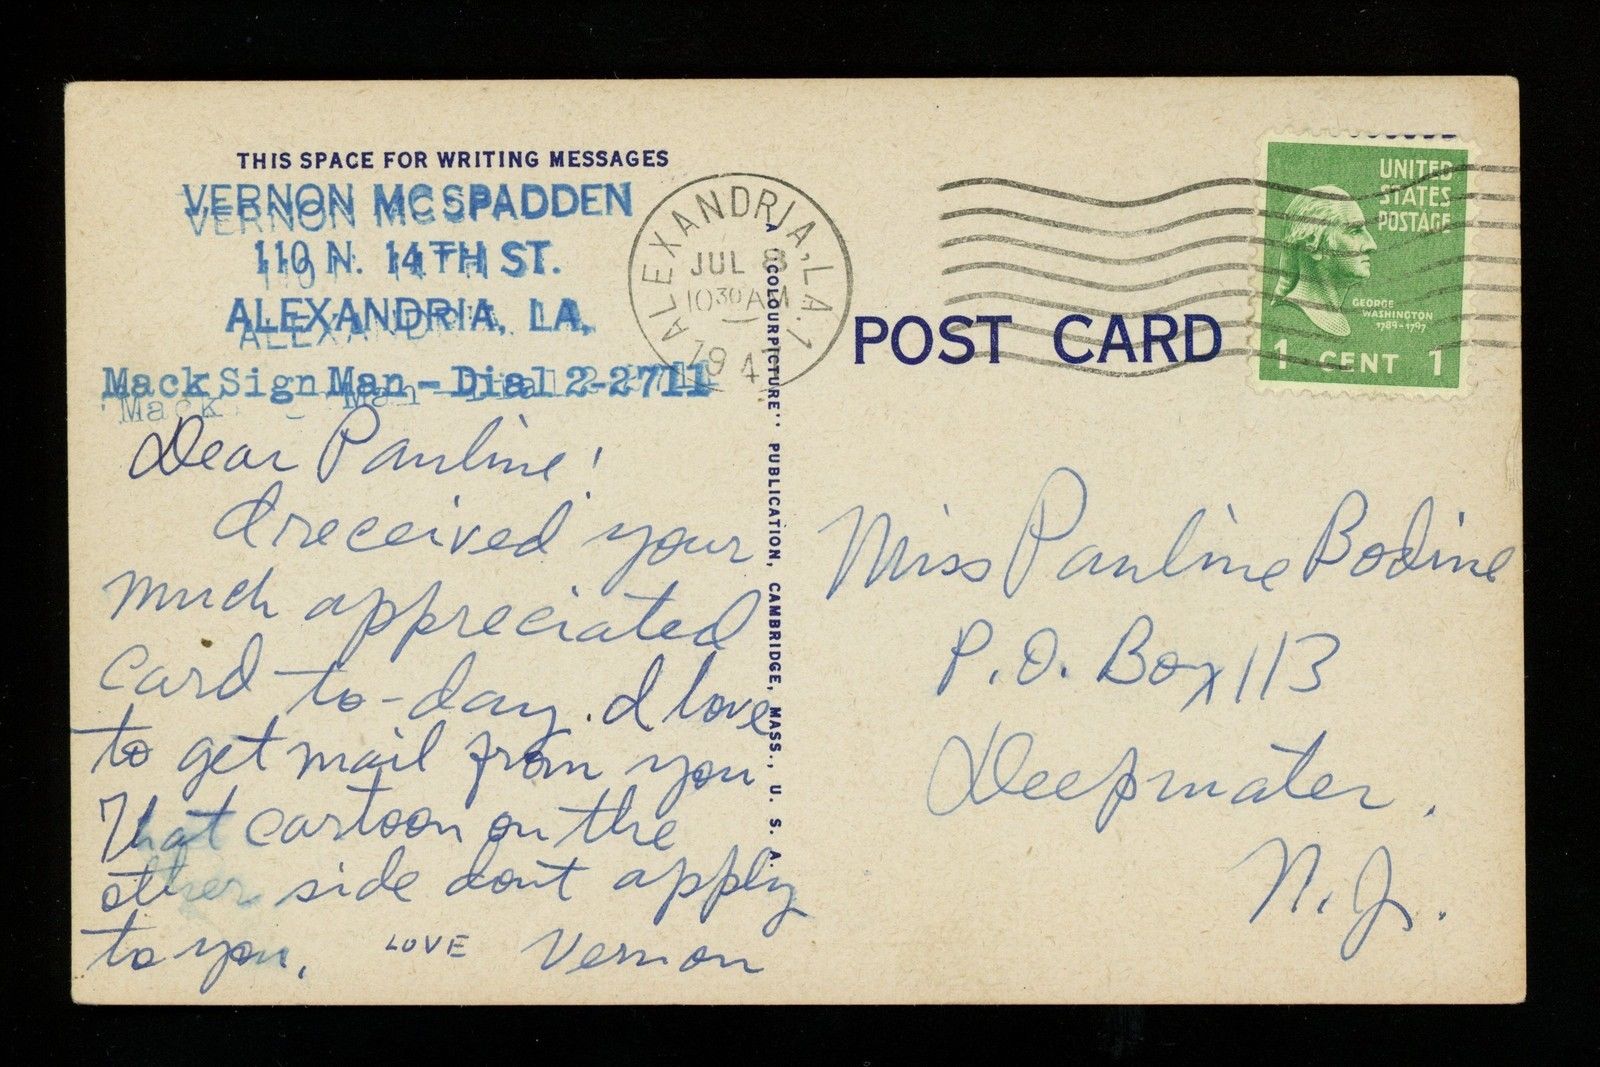 THIS SPACE FOR WRITING MESSAGES
VERNON MCSPADDEN
110 N. 14TH ST.
ALEXANDRIA, LA.
Mack Sign Man - Dial 2-2711
Dear Pauline!
I received your
much appreciated
card to-day. I love
to get mail from you
That cartoon on the
other side dont apply
to you.
LOVE Vernon
A "COLOURPICTURE" PUBLICATION, CAMBRIDGE, MASS., U. S. A.
ALEXANDRIA, LA. 1
JUL 8
10 30 AM
194
POST CARD
UNITED
STATES
POSTAGE
GEORGE
WASHINGTON
1789-1797
1 CENT 1
Miss Pauline Bodine
P.O. Box 113
Deepwater.
N.J.